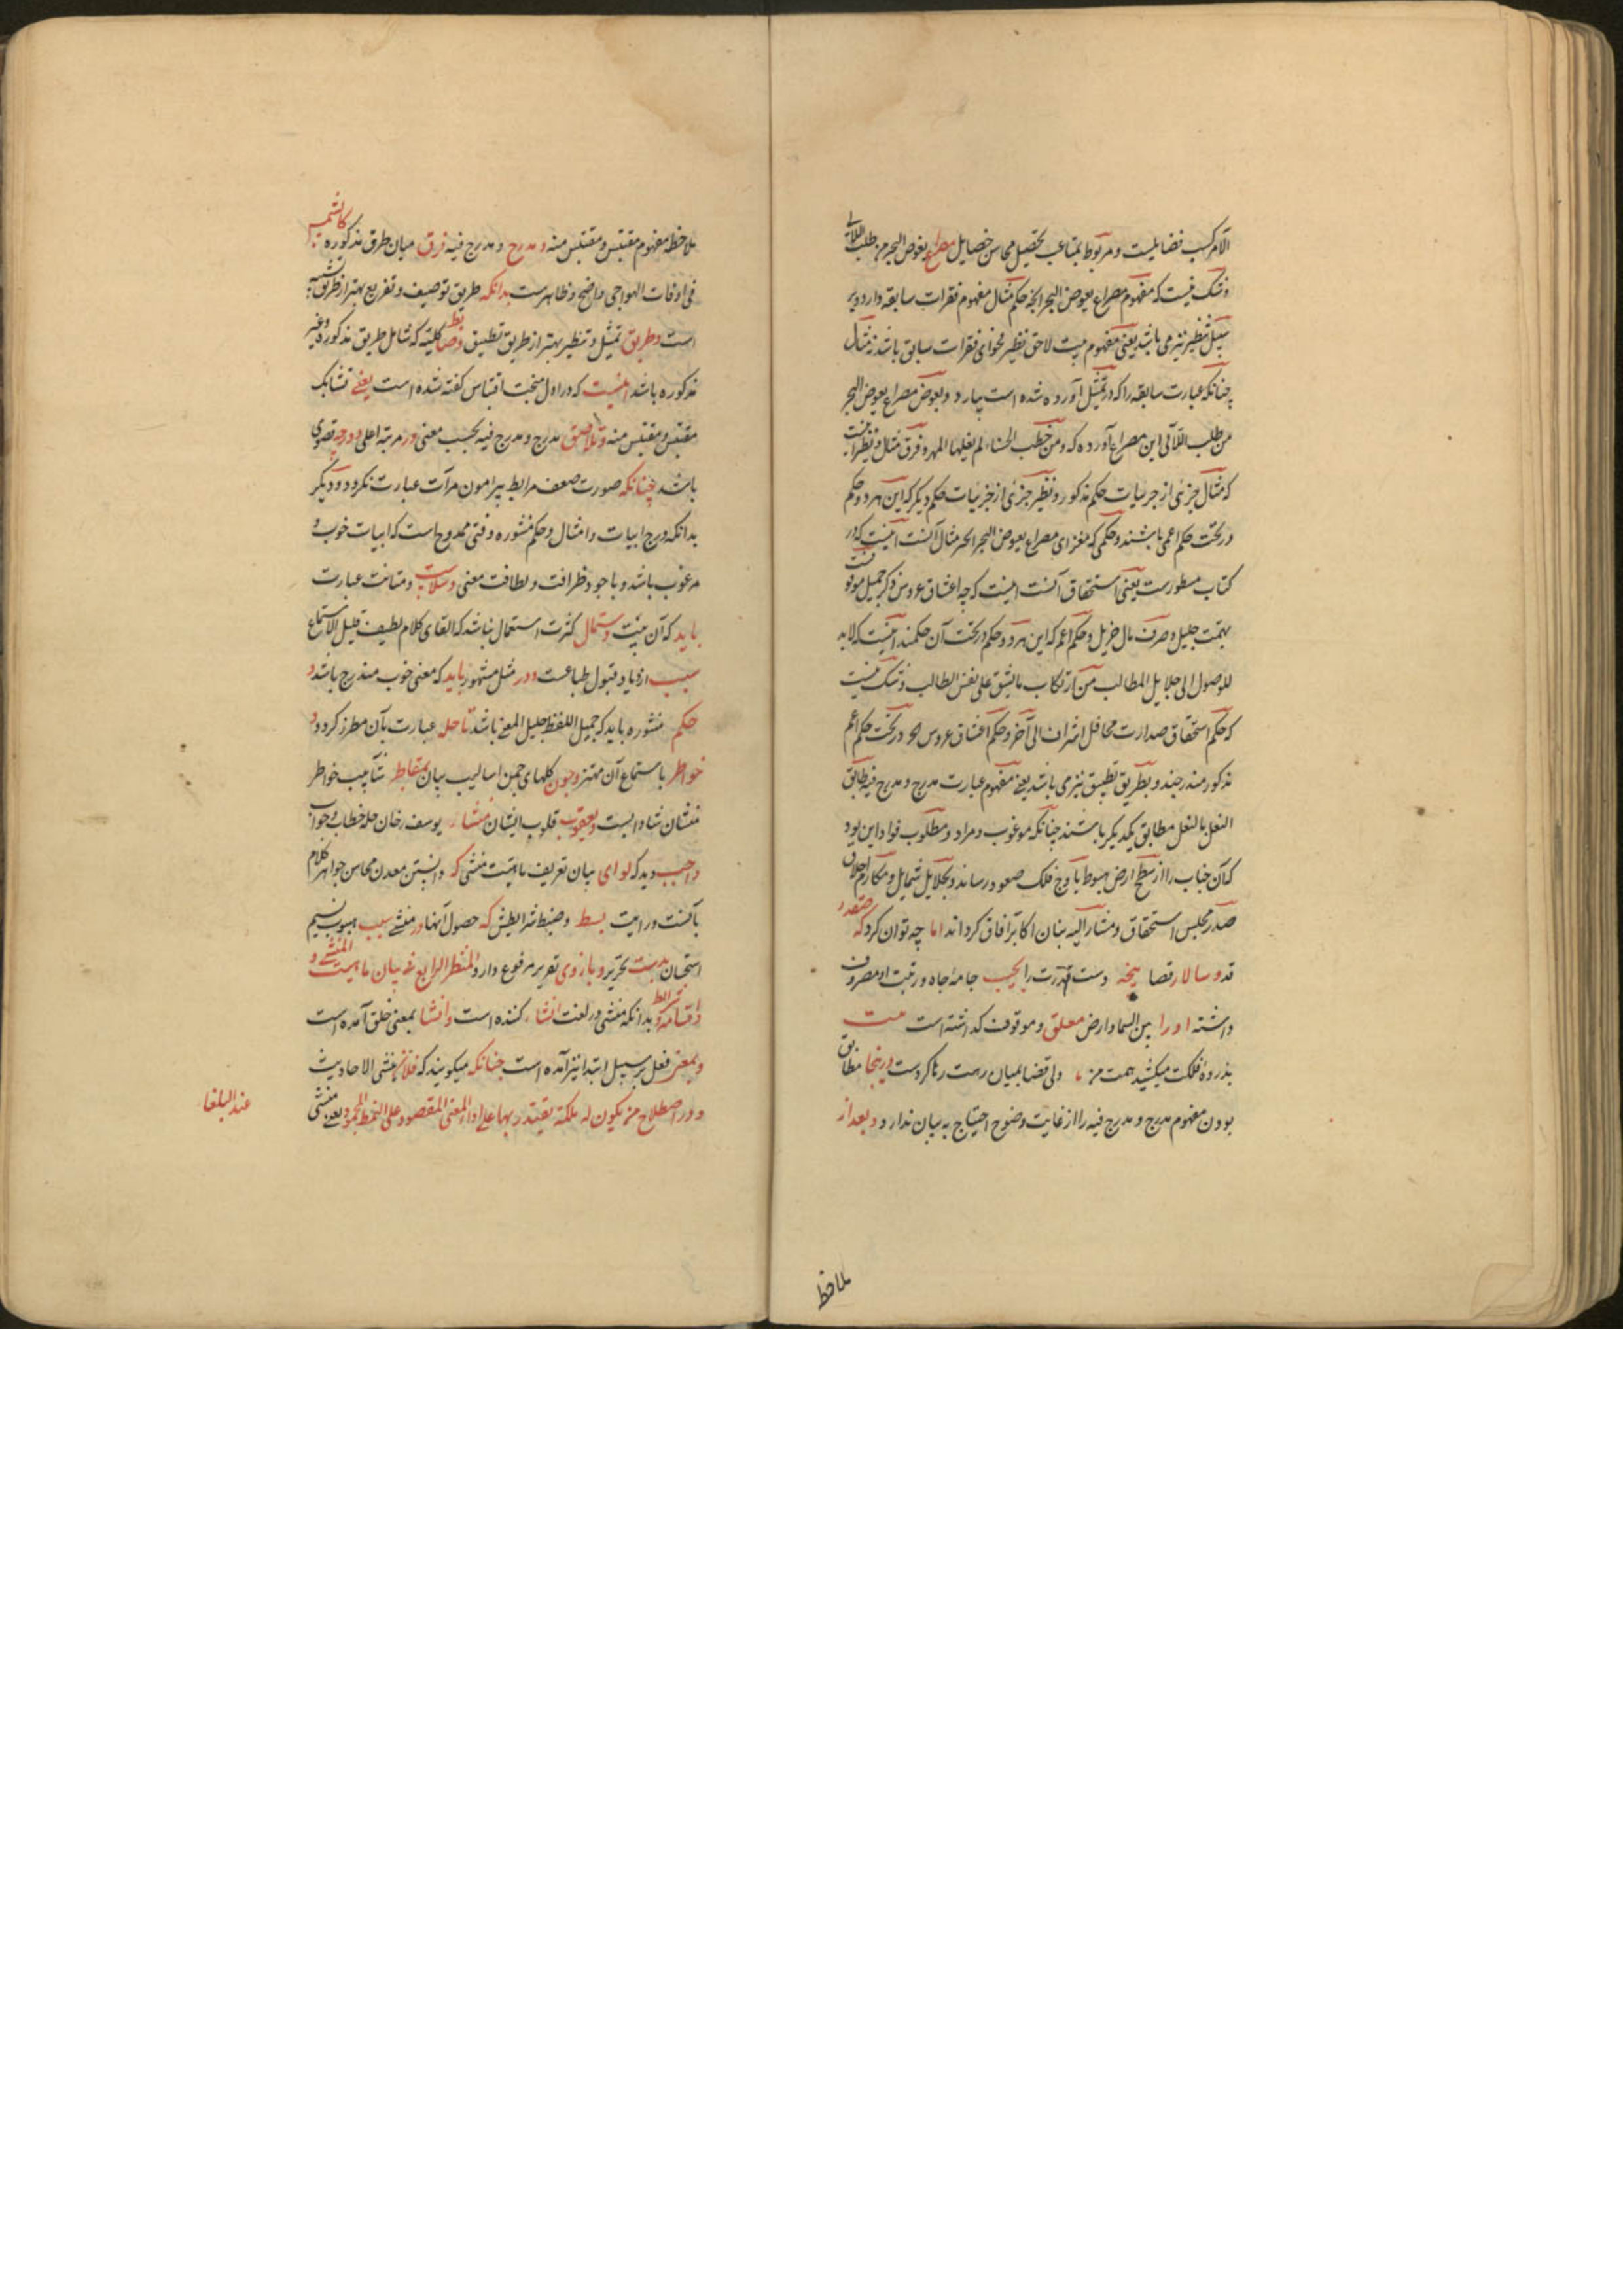 الآم کسب فضایلست و مربوط بمتاعب تحصیل محاسن خصایل مصراع یغوص البحر من طلب اللآلی
و شک نیست که مفهوم مصراع یغوص البحر الخ حکم مثال مفهوم فقرات سابقه دارد و بر
سبیل تنظیر نیز می باشد یعنی مفهوم بیت لاحق نظیر فحوای فقرات سابق باشد نه مثال
چنانکه عبارت سابقه را که در تمثیل آورده شده است بیارد و بعوض مصراع یغوص البحر
من طلب اللآلی این مصراع آورده که و من خطب الحسناء لم یغلها المهر و فرق مثال و نظیر
که مثال جزئی از جزئیات حکم مذکور و نظیر جزئی از جزئیات حکم دیگر که این هر دو حکم
در تحت حکم اعمی باشند و حکمی که مغزای مصراع یغوص البحر الخ مثال آنست اینست که در
کتاب مسطورست یعنی استحقاق آنست اینست که چه اعتناق عروس ذکر جمیل موقوفست
بهمت جلیل و صرف مال جزیل و حکم اعم که این هر دو حکم در تحت آن حکمند اینست که لابد
للوصول الی جلایل المطالب من ارتکاب ما یشق علی نفس الطالب و شک نیست
که حکم استحقاق صدارت محافل اشراف الی آخر و حکم اعتناق عروس الخ در تحت حکم اعم
مذکور مندرجند و بطریق تطبیق نیز می باشد یعنی مفهوم عبارت مدرج و مدرج فیه طابق
النعل بالنعل مطابق یکدیگر باشند چنانکه مرغوب و مراد و مطلوب فواد این بود
که آن جناب را از سطح ارض هبوط باوج فلک صعود رساند و بجلایل شمایل و مکارم اخلاق
صدر مجلس استحقاق و مشار الیه بنان اکابر آفاق گرداند اما چه توان کرد که
قد و سالار قضا دست قدرت را بجیب جامه جاه و رتبت او مصروف
داشته او را بین السما و ارض معلق و موقوف گذاشته است بیت
بذروه فلکت میکشید همت من ولی قضا بمیان رهت رها کردست درینجا مطابق
بودن مفهوم مدرج و مدرج فیه را از غایت وضوح احتیاج به بیان ندارد و بعد از
ملاحظ
ملاحظه مفهوم مقتبس و مقتبس منه و مدرج و مدرج فیه فرق میان طرق مذکوره کالشمس
فی اوقات الهواجی واضح و ظاهرست بدانکه طریق توصیف و تفریع بهتر از طریق تشبیه
است و طریق تمثیل و تنظیر بهتر از طریق تطبیق و ضابطه کلیه که شامل طریق مذکوره و غیر
مذکوره باشد اینست که در اول مبحث اقتباس گفته شده است یعنی تشابک
مقتبس و مقتبس منه و تلاصق مدرج و مدرج فیه بحسب معنی در مرتبه اعلی و درجه قصوی
باشد چنانکه صورت ضعف مرابط پیرامون مرآت عبارت نگردد و دیگر
بدانکه درج ابیات و امثال و حکم منثوره وقتی ممدوح است که ابیات خوب و
مرغوب باشد و با وجود ظرافت و لطافت معنی و سلاست و متانت عبارت
باید که آن بیت مستعمل کثرت استعمال نباشد که القای کلام لطیف قلیل الاستماع
سبب ازدیاد قبول طباعست و در مثل مشهور باید که معنی خوب مندرج باشد و
حکم منثوره باید که جمیل اللفظ جلیل المعنی باشد تا حله عبارت بآن مطرز گردد و
خواطر باستماع آن مهتز و چون گلهای چمن اسالیب بیان بتقاطر شآبیب خواطر
منشیان شادابست و یعقوب قلوب ایشان یوسف رخان حله خطاب و جواب
واجب دید که لوای بیان تعریف ماهیت منشی که دانستن معدن محاسن جواهر کلام
بآنست و رایت بسط و ضبط شرایطش که حصول آنها در منشی سبب هبوب نسیم
استحسان بدست تحریر و بازوی تقریر مرفوع دارد المنظر الرابع فی بیان ماهیت المنشی و
اقسامه و شرایطه بدانکه منشی در لغت انشاء کننده است و انشا بمعنی خلق آمده است
و بمعنی فعل بر سبیل ابتدا نیز آمده است چنانکه میگویند که فلان منشی الاحادیث
و در اصطلاح من یکون له ملکة یقتدر بها علی اداء المعنی المقصود علی النمط المحمود یعنی منشی
عند البلغا